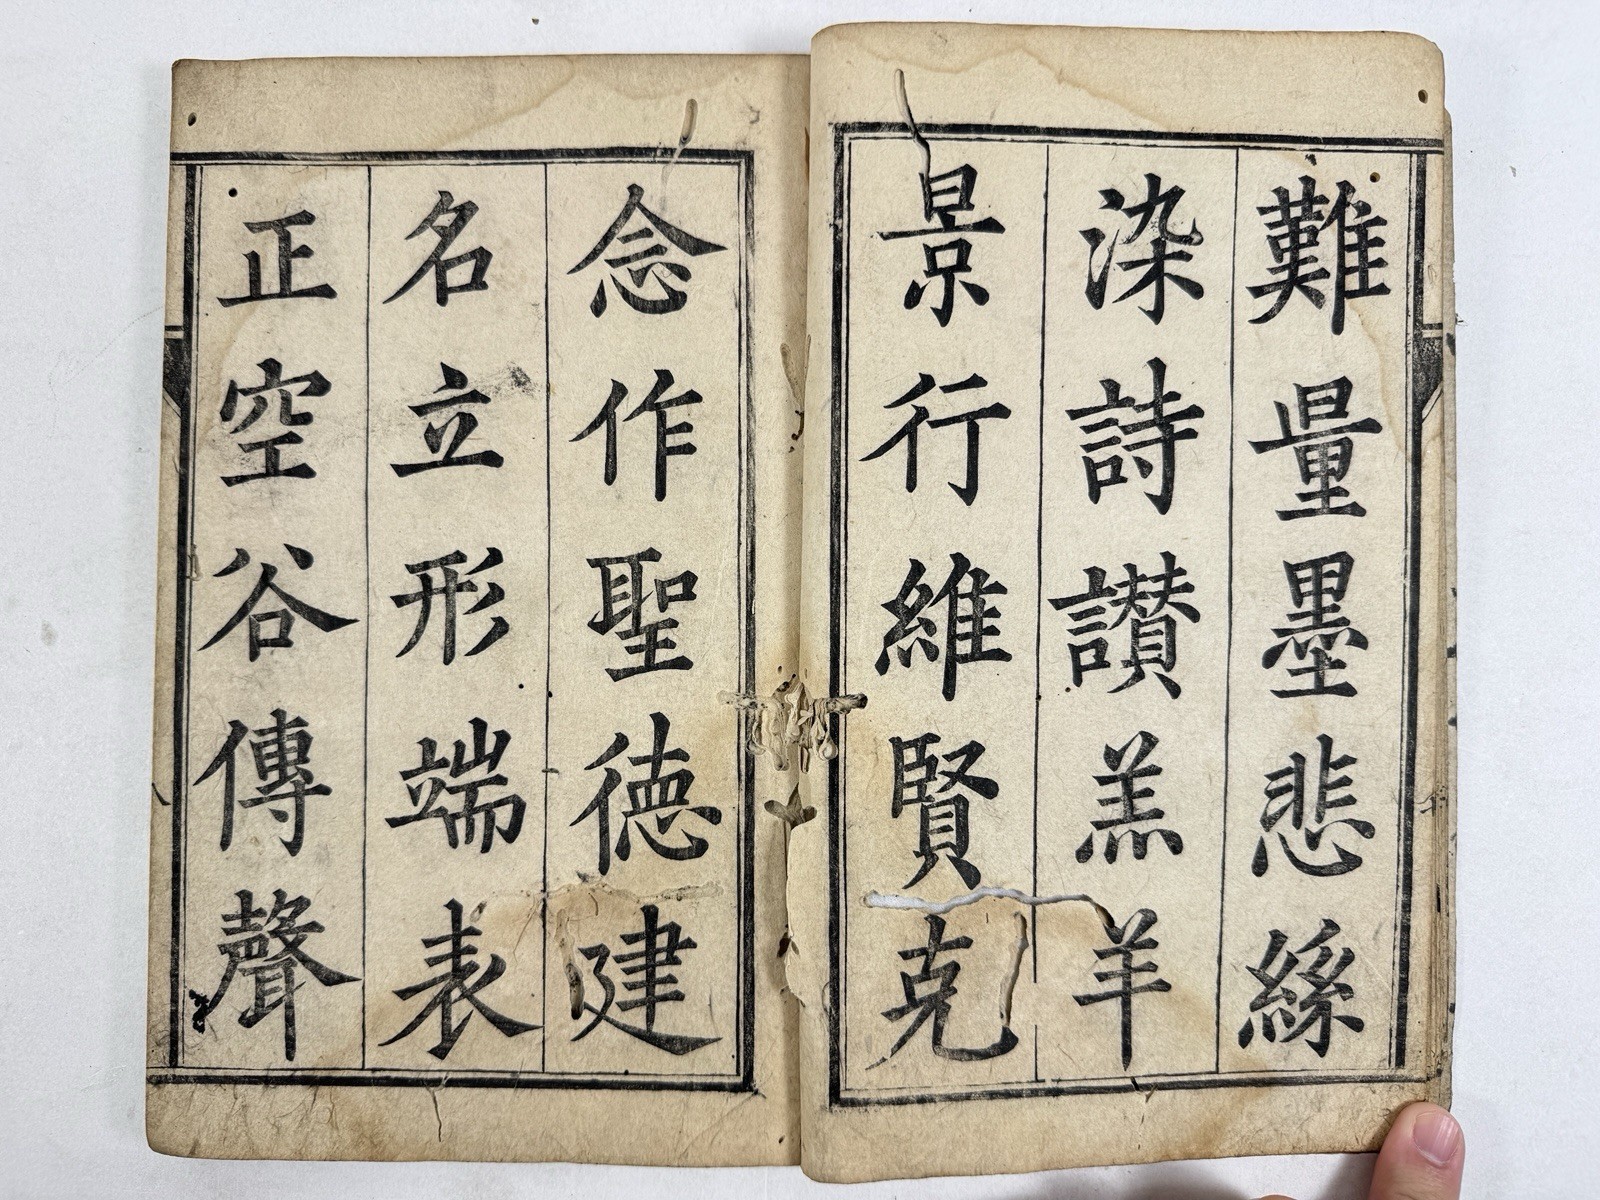 難量墨悲絲
染詩讃羔羊
景行維賢克
念作聖徳建
名立形端表
正空谷傳聲